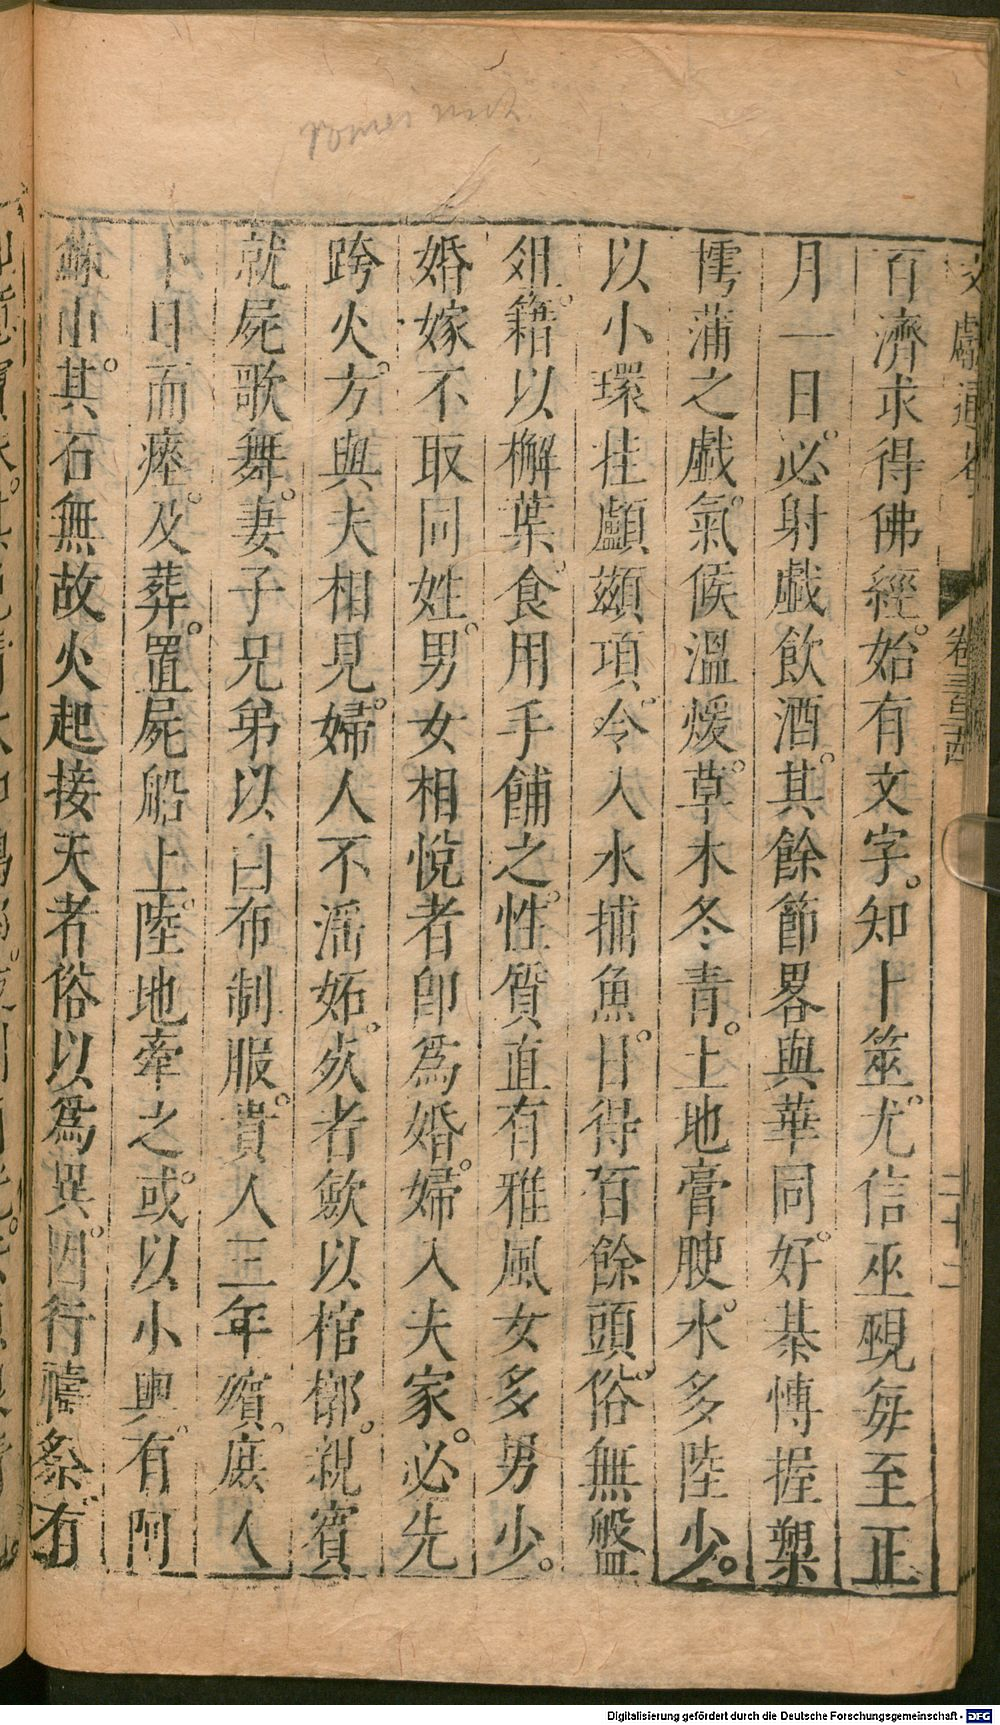 百濟求得佛經。始有文字。知卜筮。尤信巫覡每至正
月一日。必射戲飲酒。其餘節畧與華同。好棊博握槊
樗蒲之戲。氣候溫煖。草木冬青。土地膏腴。水多陸少。
以小環挂鸕鷀項。令入水捕魚。日得百餘頭。俗無盤
俎。籍以檞葉。食用手餔之。性質直有雅風女多男少。
婚嫁不取同姓。男女相悅者卽爲婚。婦入夫家。必先
跨火。方與夫相見。婦人不淫妬。死者斂以棺槨。親賓
就屍歌舞。妻子兄弟以白布制服。貴人三年殯。庶人
卜日而瘞。及葬。置屍船上。陸地牽之。或以小輿。有阿
蘇山。其石無故火起接天者俗以爲異。因行禱祭。有
文獻通考
卷三百二十四
二十二
Digitalisierung gefördert durch die Deutsche Forschungsgemeinschaft - DFG